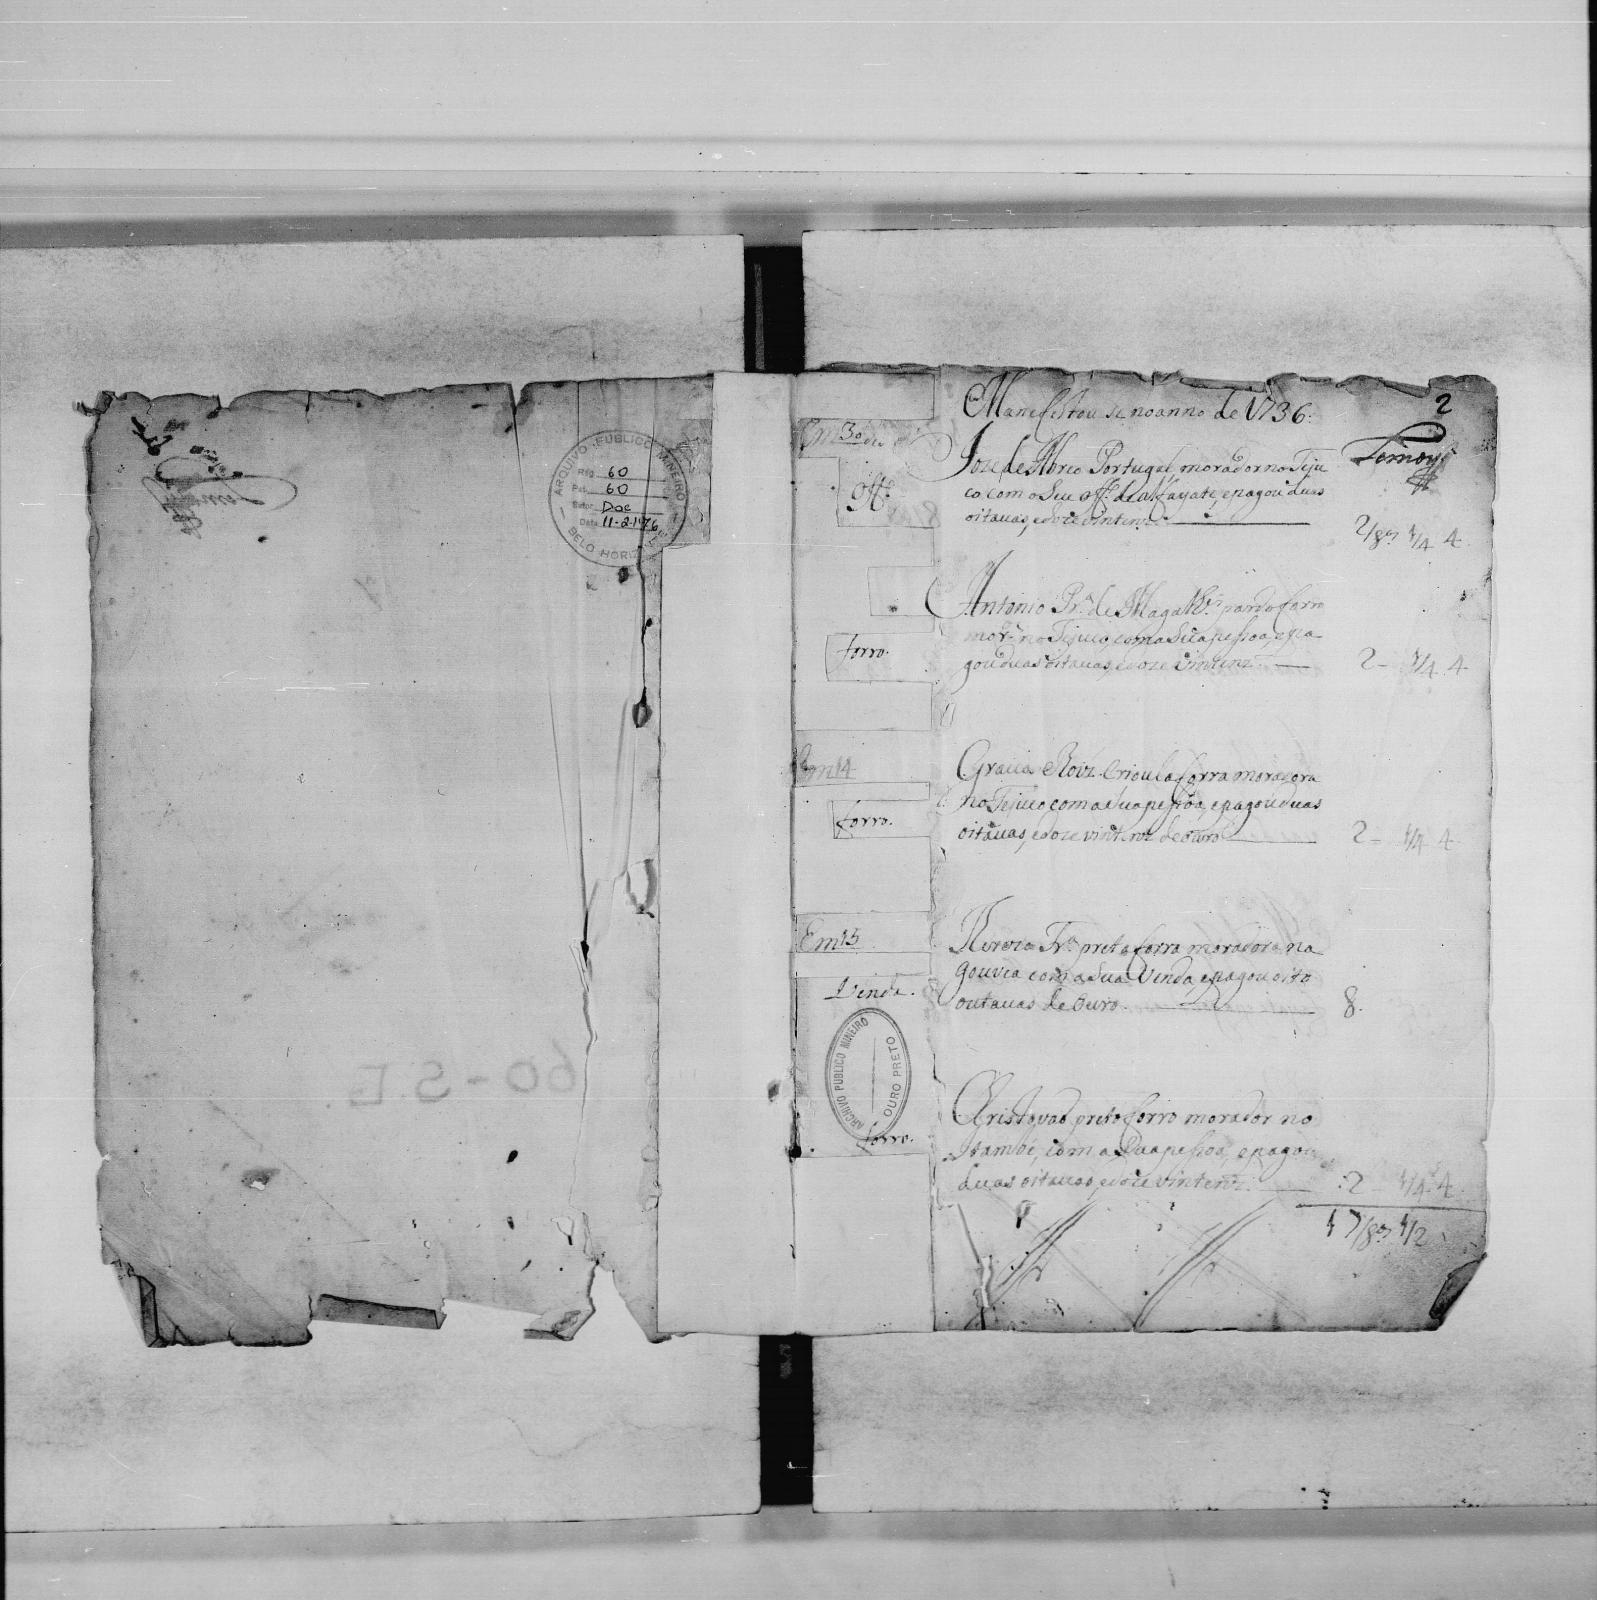 ARQUIVO PUBLICO MINEIRO
Reg. 60
Pat. 60
Setor Doc
Data 11-2-1976
BELO HORIZONTE
60-S.G.
2
Manefestou se no anno de 1736.
Em 30 de
Off.º
Joze de Abreo Portugal, morador no Teju
co com o Seu off.º de alfayate, epagou duas
oitavas, edoze vintenz
2/8as 1/4 4
forro.
Antonio Pr.ª de Magalh.s pardo forro
mor.or no Tejuco, com a Sua pessoa, epa
gou duas oitavas, edoze vintenz
2 - 1/4 4
Em 14
forro.
Gracia Roiz. Crioula forra moradora
no Tejuco com a Sua pessoa, epagou duas
oitavas, edoze vintenz de ouro
2 - 1/4 4
Em 15
Venda.
preta forra moradora na
Gouvea com a Sua Venda, epagou oito
outavas de Ouro.
8.
ARCHIVO PUBLICO MINEIRO
OURO PRETO
forro.
Christovaõ preto forro morador no
Itambé, com a Sua pessoa, epagou
duas oitavas, edoze vintenz.
2 - 1/4 4
17/8as 1/2